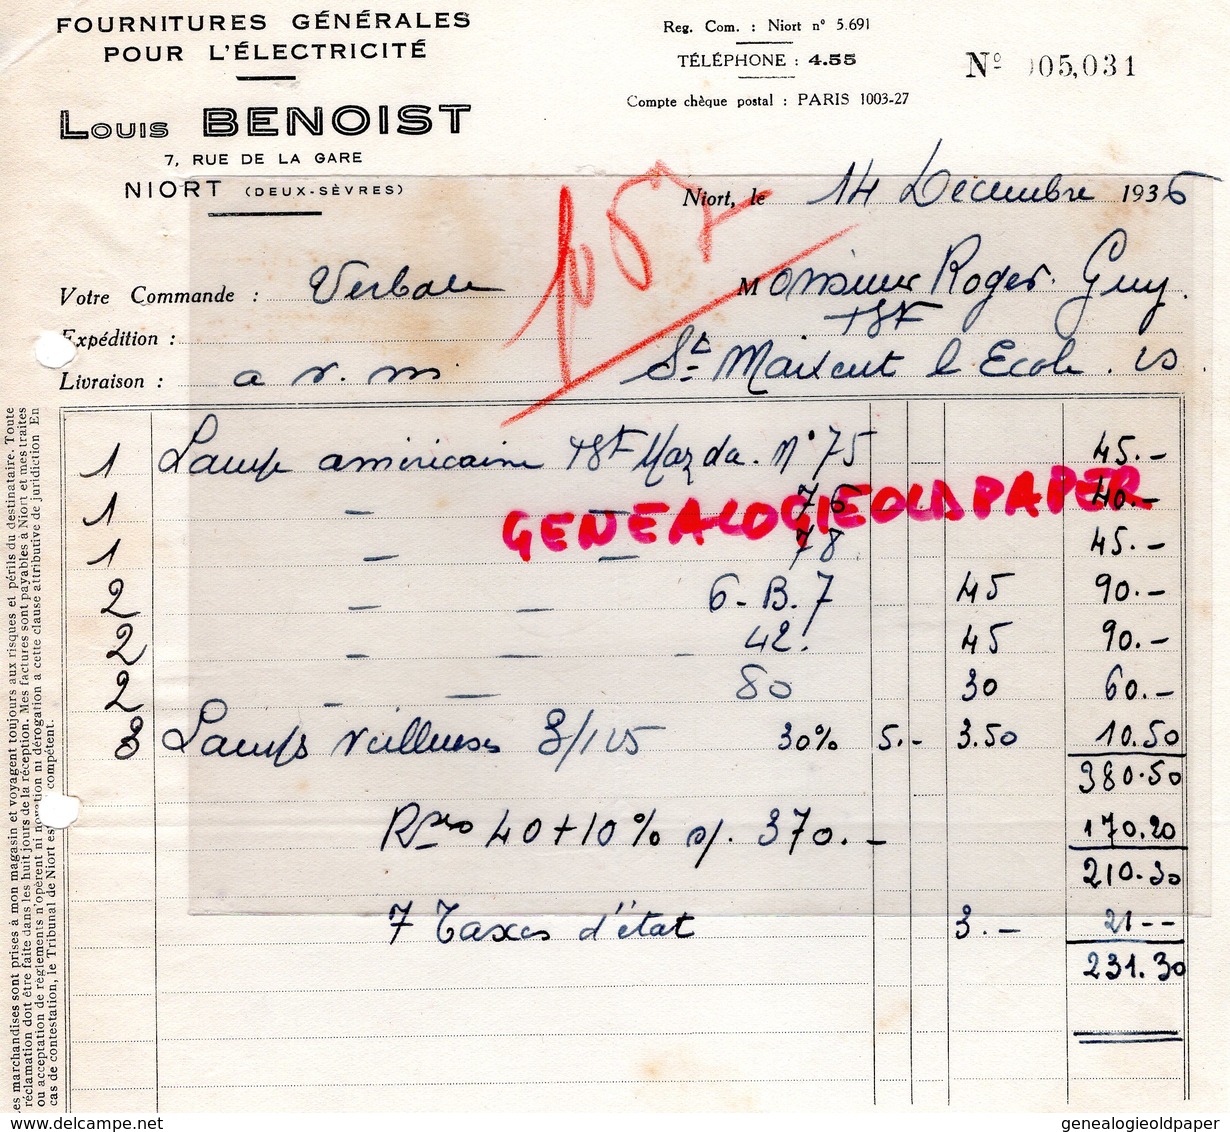 FOURNITURES GÉNÉRALES
POUR L'ÉLECTRICITÉ
LOUIS BENOIST
7, RUE DE LA GARE
NIORT (DEUX-SÈVRES)
Reg. Com. : Niort n° 5.691
TÉLÉPHONE : 4.55
Compte chèque postal : PARIS 1003-27
Nº 005,031
Niort, le 14 Décembre 1936
1057
Votre Commande : Verbale
Monsieur Roger Guy.
TSF
Expédition :
St Maixent l Ecole. DS.
Livraison : a v. m
1 Lampe américaine TSF Mazda. N° 75 45.-
1 - - 76 40.-
1 - - 78 45.-
2 - - 6-B.7 45 90.-
2 - - - 42. 45 90.-
2 - - 80 30 60.-
3 Lamps veilleuses 3/125 30% 5.- 3.50 10.50
380.50
Rses 40+10% s/. 370.- 170.20
210.30
7 Taxes d'état 3.- 21--
231.30
Les marchandises sont prises à mon magasin et voyagent toujours aux risques et périls du destinataire. Toute
réclamation doit être faite dans les huit jours de la réception. Mes factures sont payables à Niort et mes traites
ou acceptation de règlements n'opèrent ni novation ni dérogation a cette clause attributive de juridiction En
cas de contestation, le Tribunal de Niort est compétent.
GENEALOGIEOLDPAPER
www.delcampe.net
genealogieoldpaper